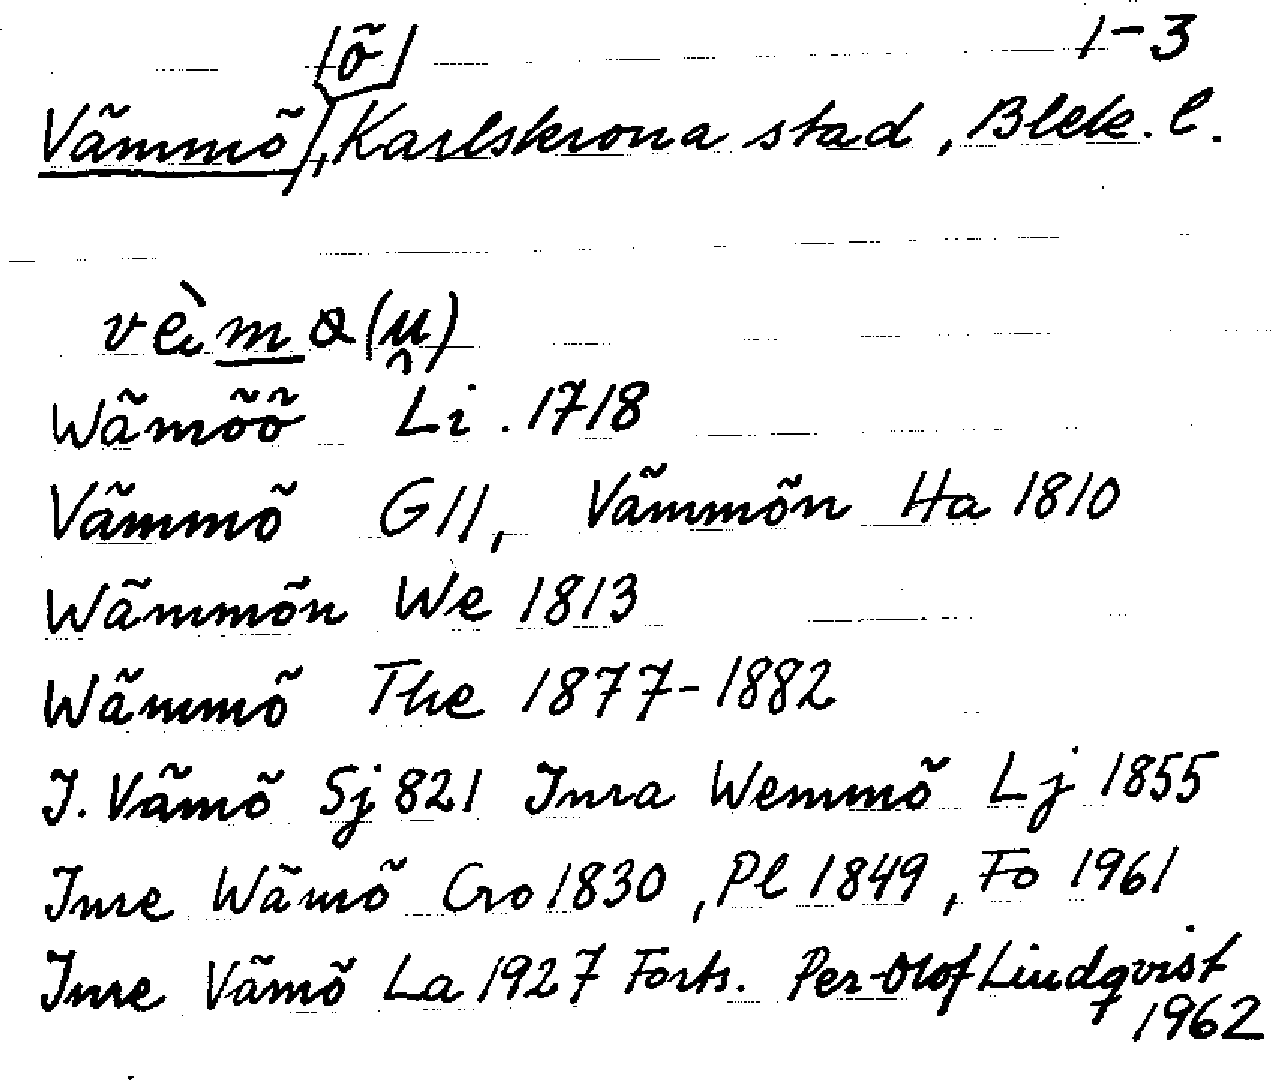 1-3
Vämmö/ö/, Karlskrona stad, Blek. l.
Wämöö Li. 1718
Vämmö GII, Vämmön Ha 1810
Wämmön We 1813
Wämmö The 1877-1882
I. Vämö Sj 821 Inra Wemmö Lj 1855
Inre Wämö Cro 1830, Pl 1849, Fo 1961
Inre Vämö La 1927 Forts. Per-Olof Lindqvist
1962